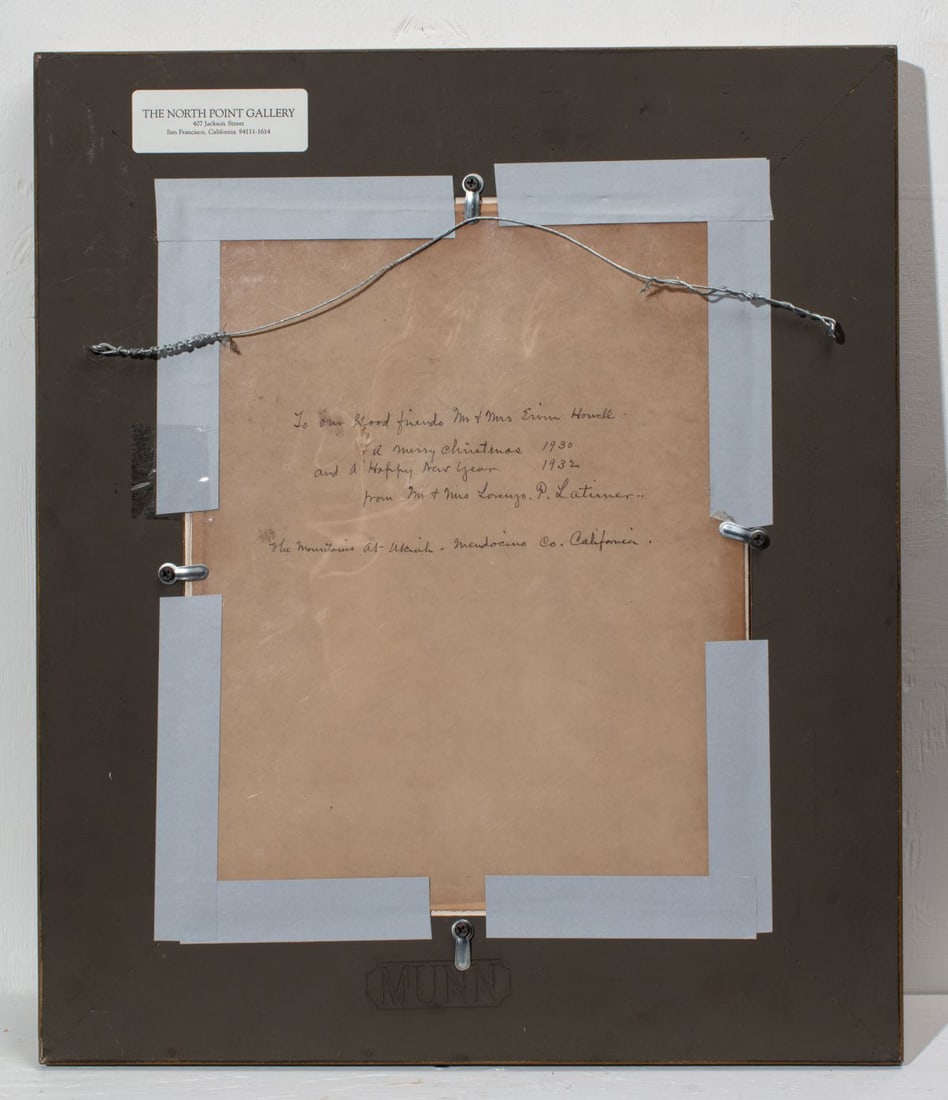 THE NORTH POINT GALLERY
407 Jackson Street
San Francisco, California 94111-1614
To our Good friends Mr & Mrs Ervin Howell
A merry Christmas 1930
and A Happy New Year 1932
from Mr & Mrs Lorenzo. P. Latimer..
The Mountains At Ukiah. Mendocino Co. California.
MUNN